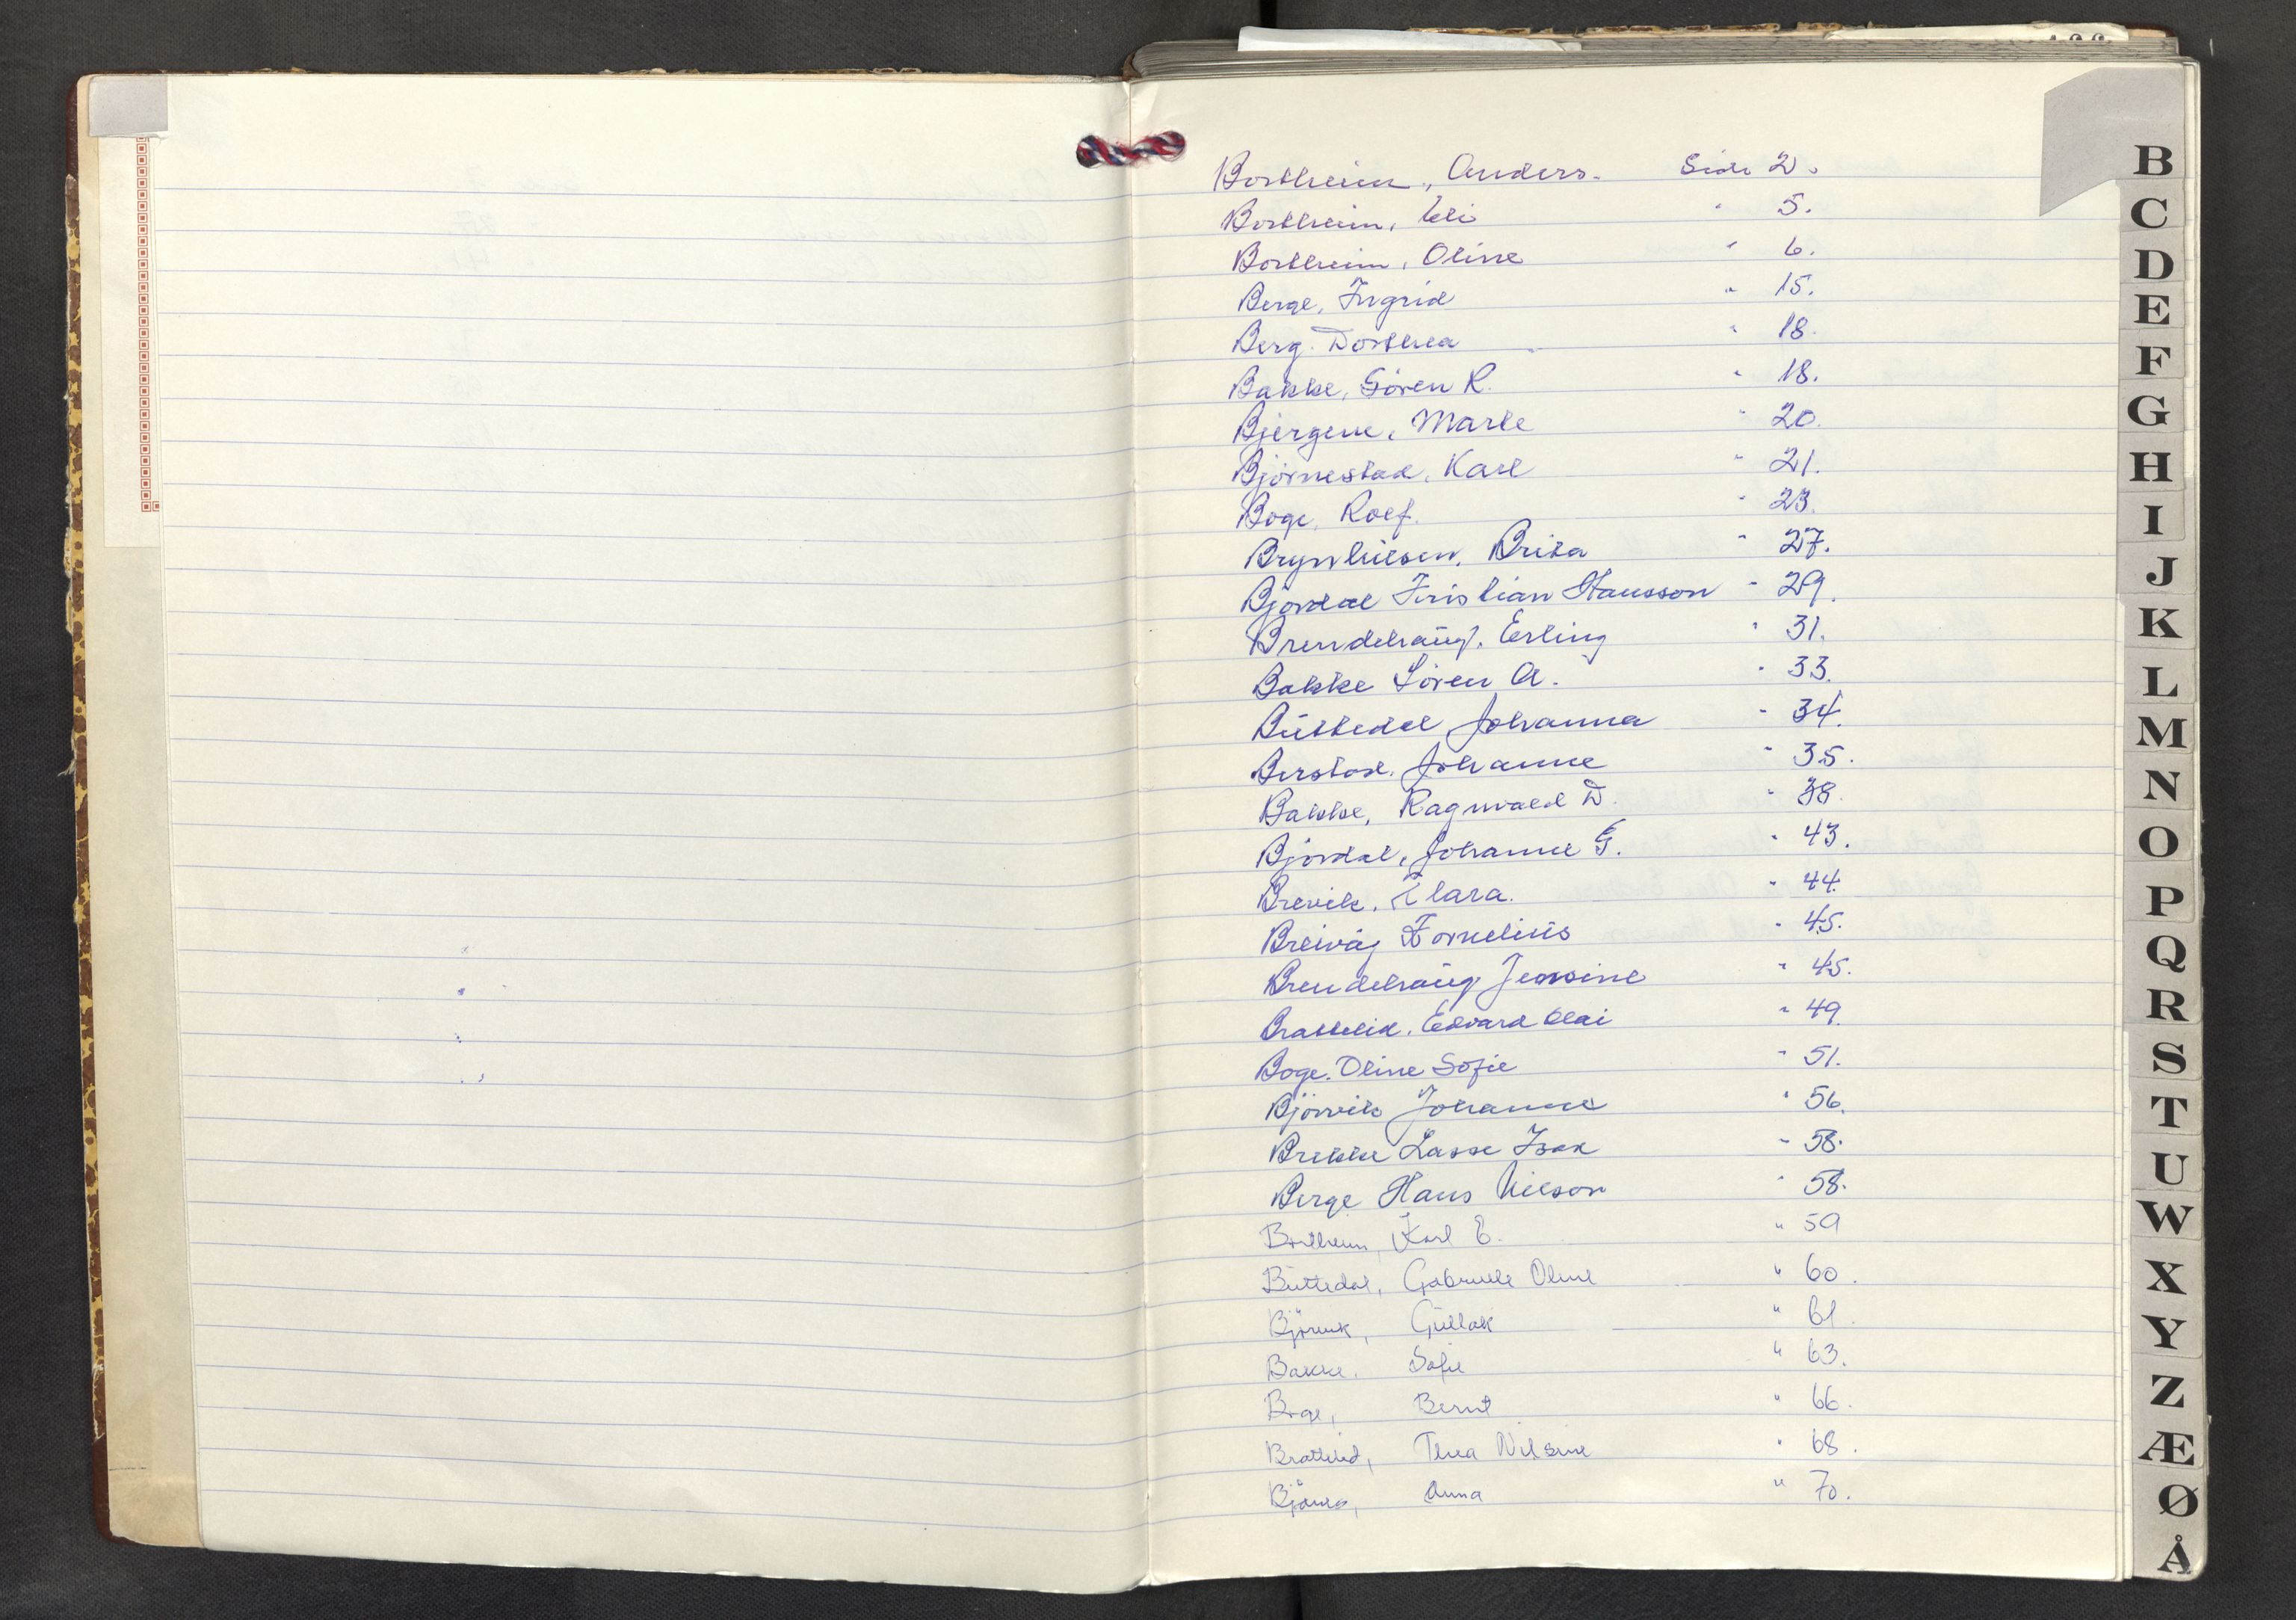 Bortheim, Anders. Side 2.
Bortheim, Eli " 5.
Bortheim, Oline " 6.
Berge, Ingrid " 15.
Berg. Dorthea " 18.
Bakke, Sören R. " 18.
Bjergene, Marte " 20.
Björnestad, Karl " 21.
Boge, Rolf. " 23.
Brynhilsen, Brita " 27.
Bjordal Kristian Hansson " 29.
Brendehaug, Erling " 31.
Bakke Sören A. " 33.
Büttedal Johanna " 34.
Berstad, Johanne " 35.
Bakke, Ragnvald D. " 38.
Bjordal, Johanne G. " 43.
Brevik, Klara. " 44.
Breivåg Kornelius " 45.
Brendehaug Jensine " 45.
Brattelid, Edvard Olai " 49.
Boge. Oline Sofie " 51.
Björvik Johanne " 56.
Brekke Lasse Isak " 58.
Berge Hans Nilson " 58.
Bortheim, Karl E. " 59
Büttedal, Gabrielle Oline " 60.
Björvik, Gullak " 61.
Bakke, Sofie " 63.
Boge, Bernt " 66.
Brattelid, Thea Nilsine " 68.
Anna " 70.
B
C
D
E
F
G
H
I
J
K
L
M
N
O
P
Q
R
S
T
U
W
X
Y
Z
Æ
Ø
Å